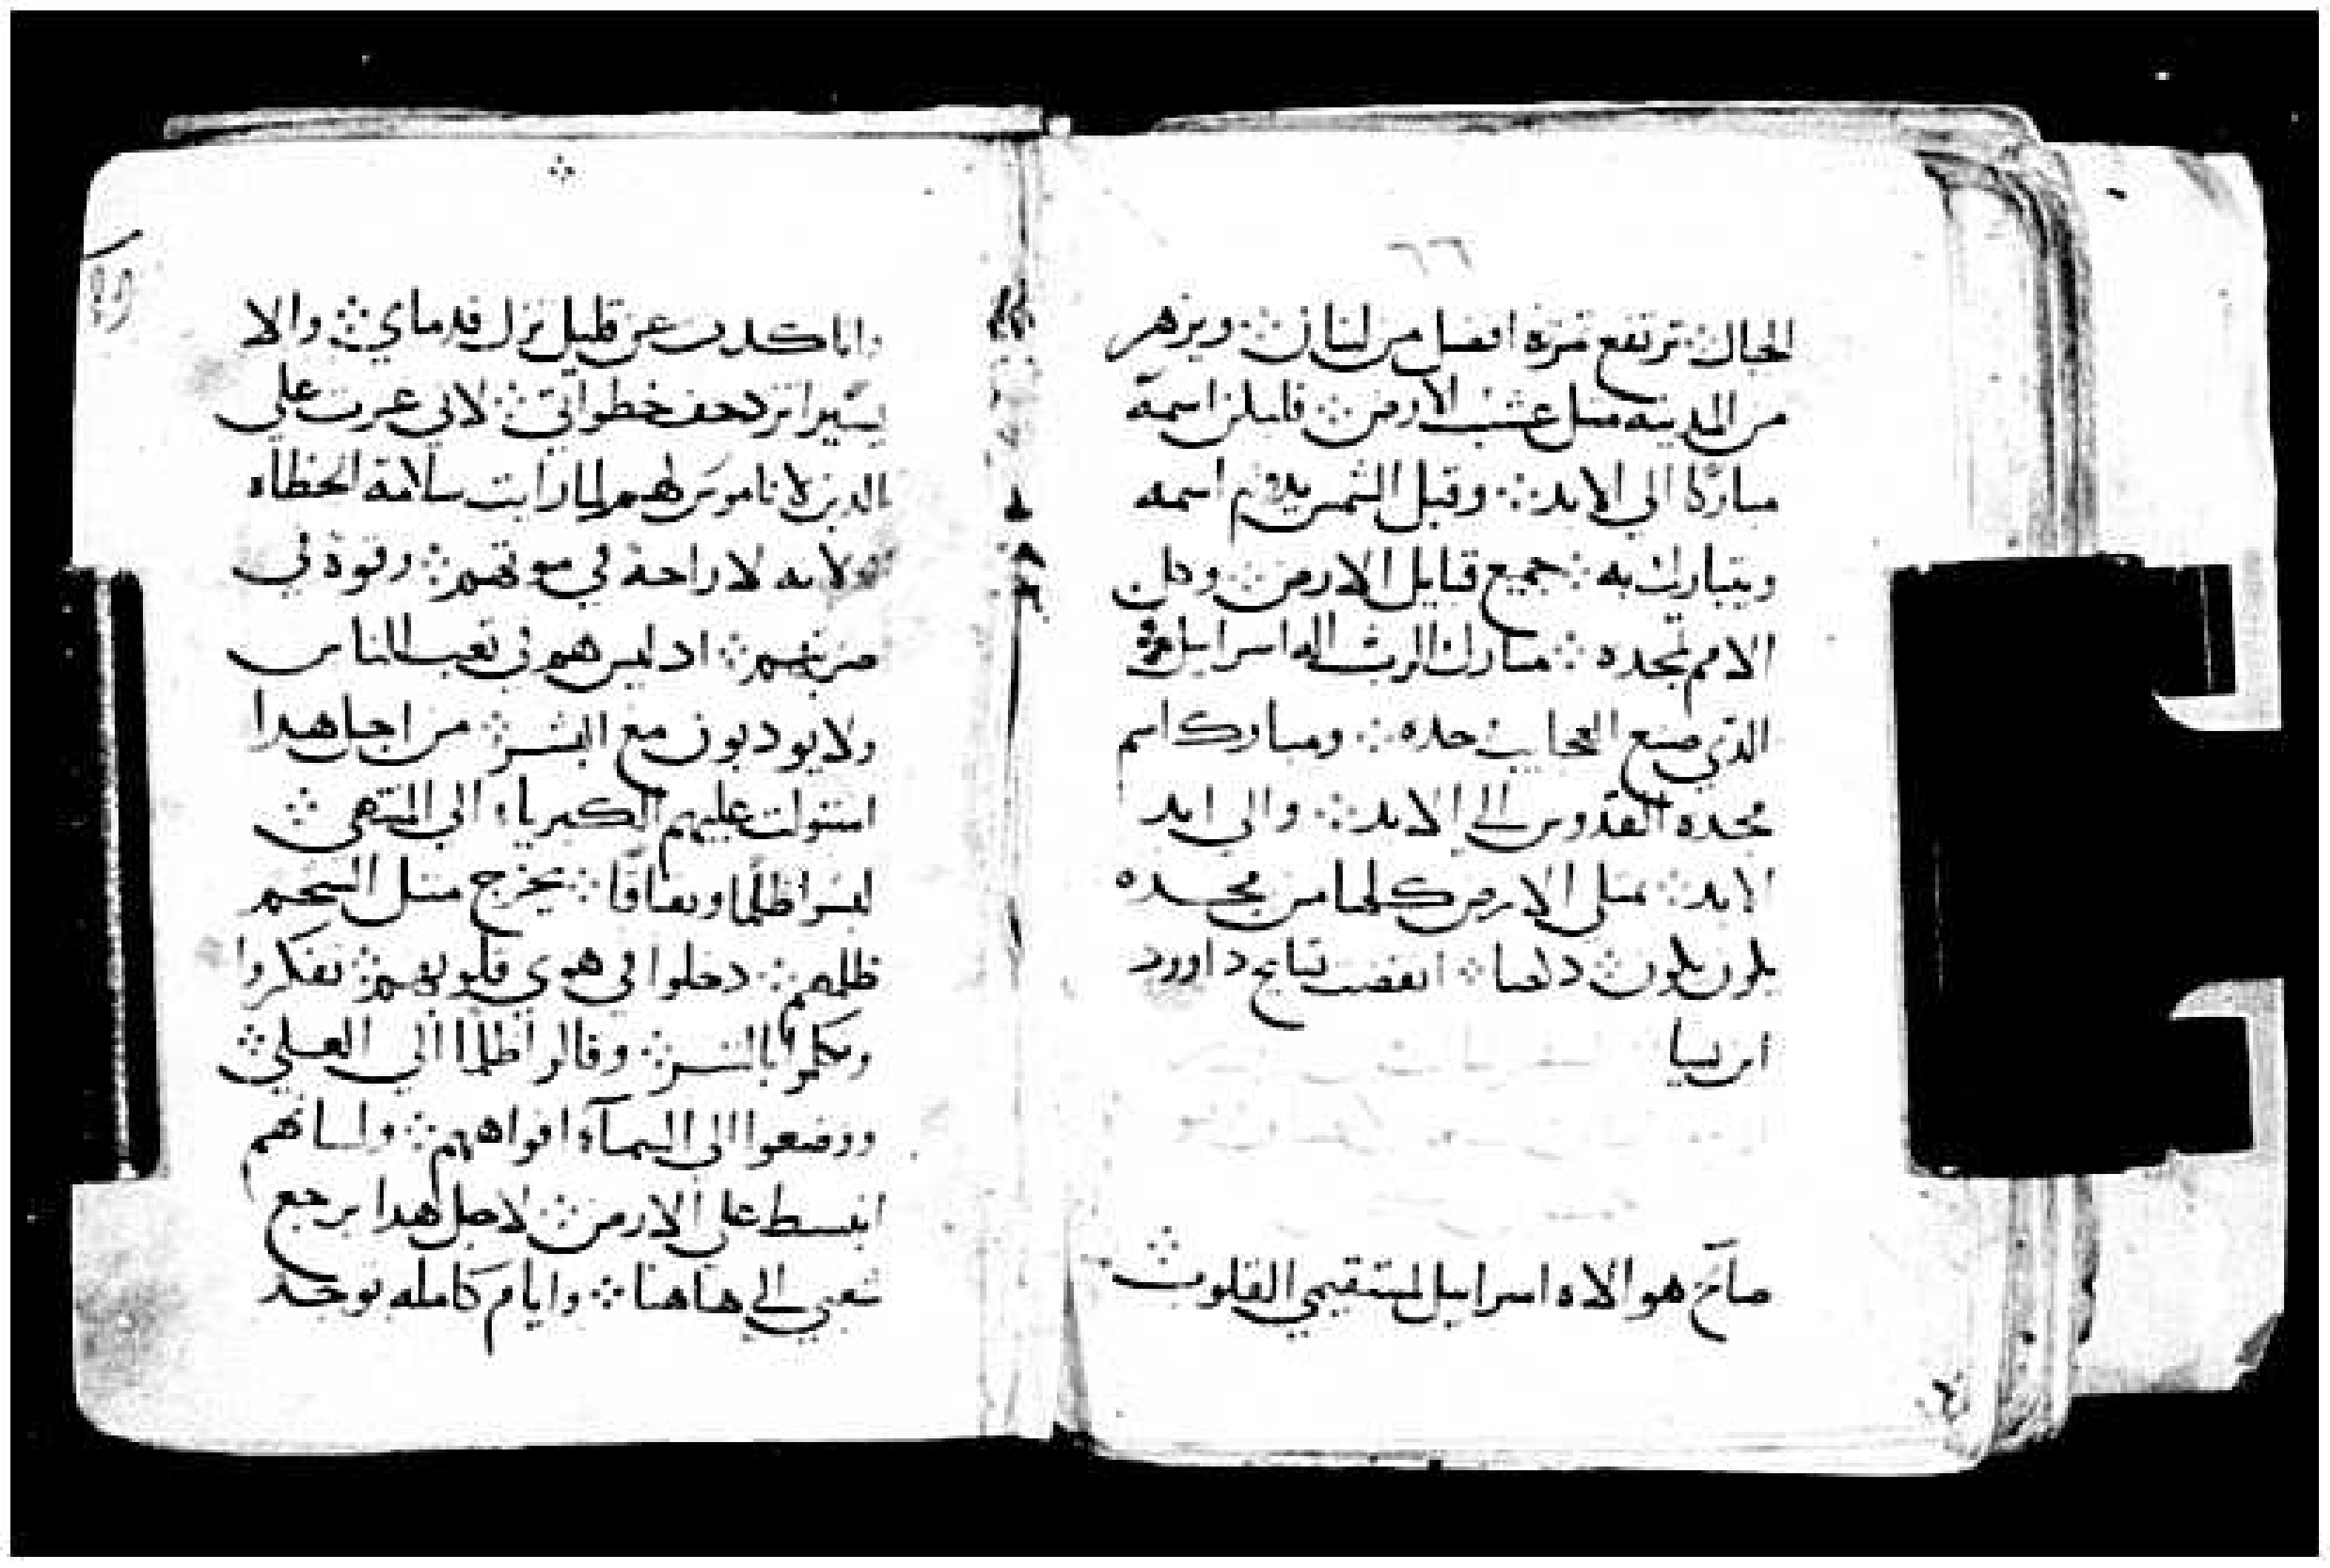 ٦٦
الجبال ⁘ ترتفع ثمرة افضل من لبنان ⁘ ويزهر
من المدينه مثل عشب الارض ⁘ فليكن اسمه
مباركا الي الابد ⁘ وقبل الشمس يدوم اسمه
ويتبارك به ⁘ جميع قبايل الارض ⁘ وكل
الامم تمجده ⁘ مبارك الرب اله اسرايل
الذي صنع العجايب وحده ⁘ ومبارك اسم
مجده القدوس الي الابد ⁘ والي ابد
الابد ⁘ تمتلي الارض كلها من مجده
يكون يكون ⁘ انقضت تسابيح داوود
ابن يسا
صالح هو الاه اسرايل لمستقيمي القلوب ⁘
وانا كدت عن قليل تزل قدماي ⁘ والا
يسيرا تزدحف خطواتي ⁘ لاني غرت علي
الذين لا ناموس لهم لما رايت سلامة الخطاه
ولانه لا راحة في موتهم ⁘ وقوة في
ضربتهم ⁘ اد ليس هم في تعب الناس
ولا يودبون مع البشر ⁘ من اجل هدا
استولت عليهم الكبرياء الي المنتهي ⁘
لبسوا ظلما ونفاقا ⁘ يخرج مثل الشحم
ظلمهم ⁘ دخلوا في هوي قلوبهم ⁘ تفكروا
وتكلموا بالشر ⁘ وقالوا ظلما الي العلي ⁘
ووضعوا الي السماء افواههم ⁘ ولسانهم
انبسط علي الارض ⁘ لاجل هدا يرجع
شعبي الي هاهنا ⁘ وايام كامله توجد